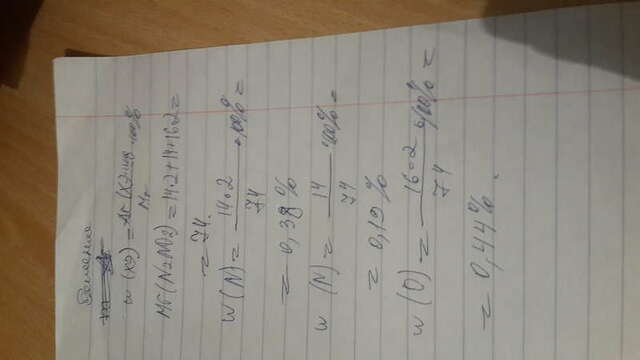 Решение
w (хэ) = Ar (хэ)·инд / Mr ·100%
Mr (N2NO2) = 14·2+14+16·2 =
= 74.
W (N) = 14·2 / 74 ·100% =
= 0,38 %
w (N) = 14 / 74 ·100% =
= 0,19 %
w (O) = 16·2 / 74 ·100% =
= 0,44%.